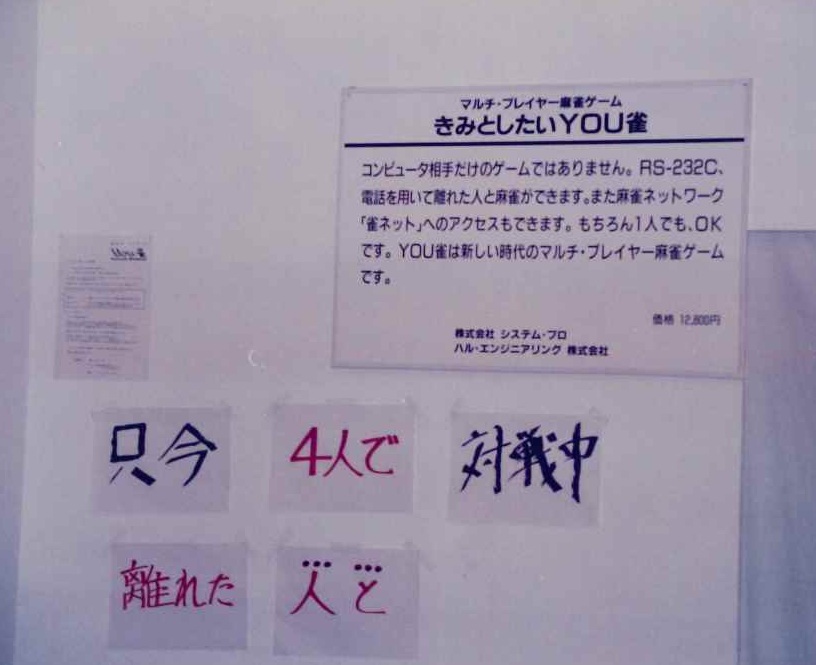 マルチ・プレイヤー麻雀ゲーム
きみとしたいYOU雀
コンピュータ相手だけのゲームではありません。RS-232C、
電話を用いて離れた人と麻雀ができます。また麻雀ネットワーク
「雀ネット」へのアクセスもできます。もちろん1人でも、OK
です。YOU雀は新しい時代のマルチ・プレイヤー麻雀ゲーム
です。
価格 12,800円
株式会社 システム・プロ
ハル・エンジニアリング 株式会社
只今 4人で 対戦中
離れた 人と